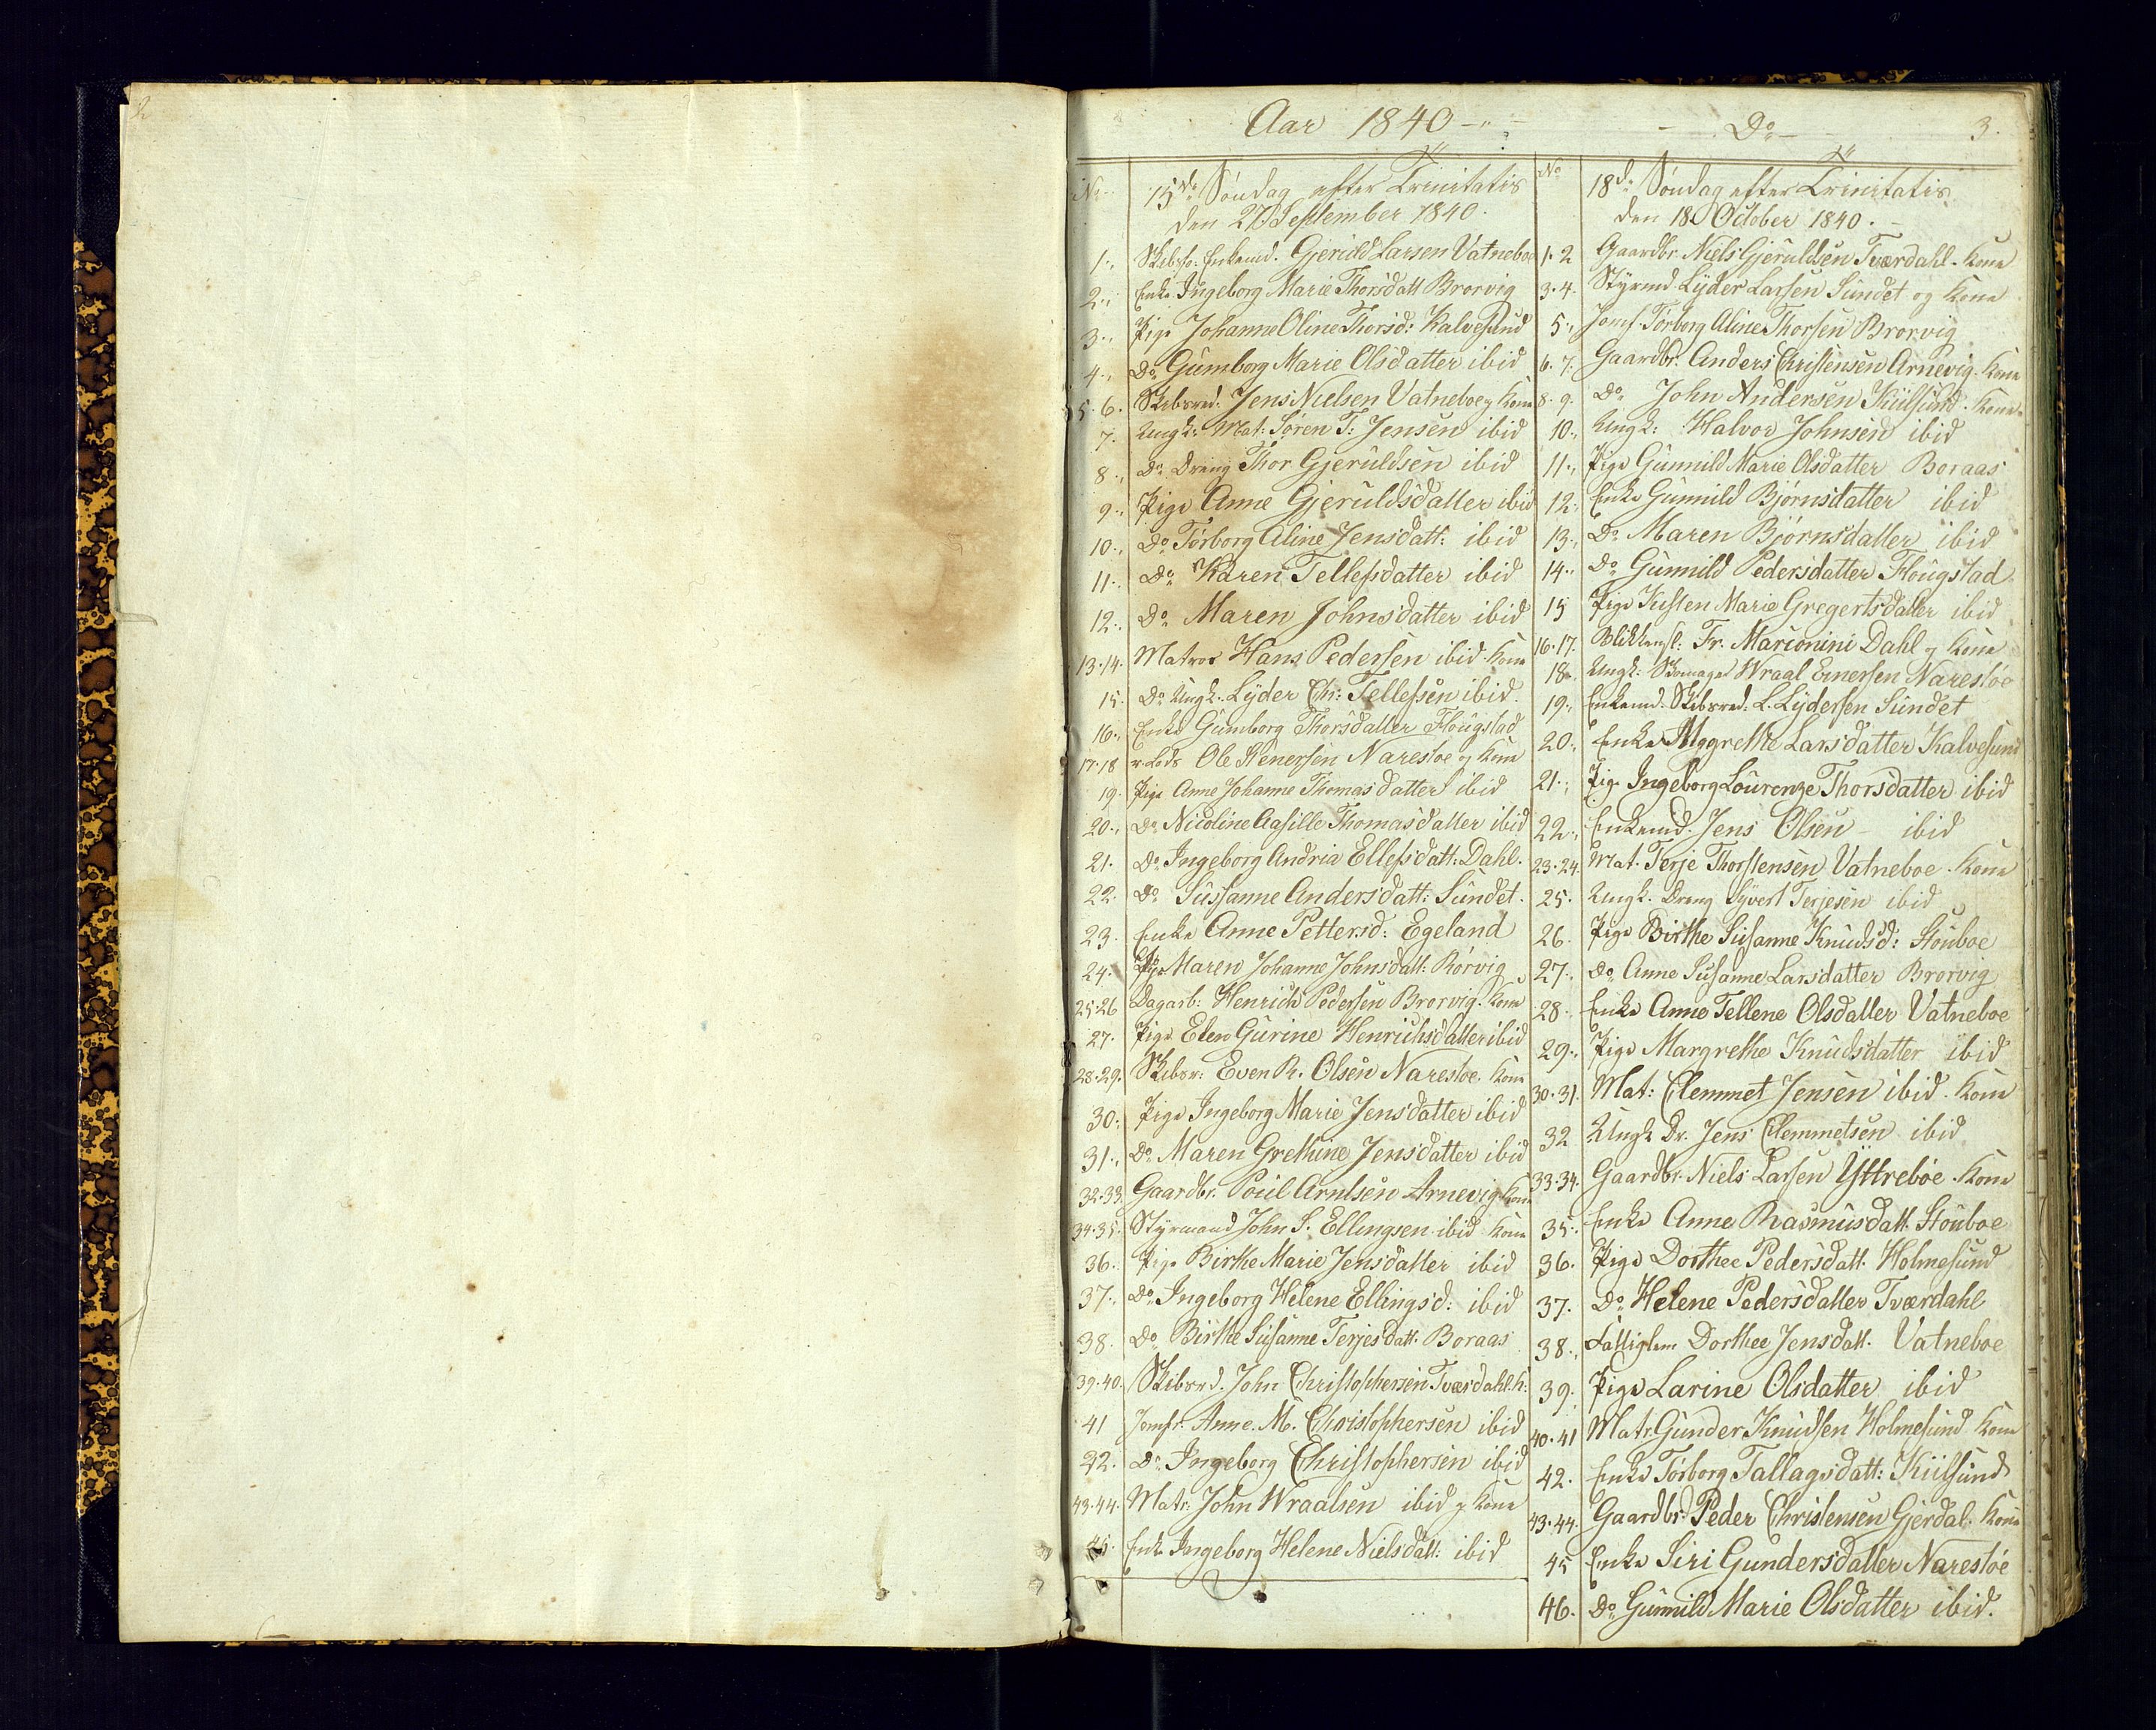 2
Aar 1840
Do
3.
No
15de Søndag efter Trinitatis
den 27 September 1840.
1., Skibsfø. Enkemd. Gjeruld Larsen Vatneboe
2., Enke Ingeborg Marie Thorsdatt Brorvig
3., Pige Johanne Oline Thorsd: Kalvesund
4., Do Gumborg Marie Olsdatter ibid
5. 6. Skibsred. Jens Nielsen Vatneboe og Kone
7. Ungk: Mat: Søren T: Jensen ibid
8., Do Dreng Thor Gjeruldsen ibid
9., Pige Anne Gjeruldsdatter ibid
10., Do Torborg Aline Jensdatt: ibid
11., Do Karen Tellefsdatter ibid
12., Do Maren Johnsdatter ibid
13.14. Matros Hans Pedersen ibid. Kone
15. Do Ungk. Lyder Chr: Tellefsen ibid.
16., Enke Gumborg Thorsdatter Flougstad
17.18 Lods Ole Stenersen Narestoe og Kone
19. Pige Anne Johanne Thomasdatter ibid
20., Do Nicoline Aasille Thomasdatter ibid
21. Do Ingeborg Andria Ellefsdatt: Dahl.
22. Do Susanne Andersdatt: Sundet.
23. Enke Anne Pettersd: Egeland
24. Pige Maren Johanne Johnsdatt: Rørvig
25.26 Dagarb: Henrich Pedersen Brorvig. Kone
27. Pige Elen Gurine Henrichsdatter ibid
28.29. Skibsr: Even R. Olsen Narestoe. Kone
30. Pige Ingeborg Marie Jensdatter ibid
31., Do Maren Grethine Jensdatter ibid
32.33. Gaardbr. Poul Arntsen Arnevig Kone
34.35. Styrmand John S. Ellingsen ibid Kone
36. Pige Birthe Marie Jensdatter ibid
37., Do Ingeborg Helene Ellingsd: ibid
38. Do Birthe Susanne Terjesdatt. Boraas
39.40. Skibsred. John Christophersen Tværdahl. K:
41 Jomfr. Anne. M. Christophersen ibid
42. Do Ingeborg Christophersen ibid
43.44. Matr: John Wraalsen ibid og Kone
45. Enke Ingeborg Helene Nielsdatt: ibid
No
18de Søndag efter Trinitatis
den 18 October 1840.
1. 2 Gaardbr. Niels Gjeruldsen Tværdahl. Kone
3. 4. Styrmd. Lyder Larsen Sundet og Kone
5., Jomf. Torborg Aline Thorsen Brorvig
6. 7. Gaardbr. Anders Christensen Arnevig. Kone
8. 9. Do John Andersen Kiilsund. Kone
10., Ungk: Halvor Johnsen ibid
11., Pige Gunnild Marie Olsdatter Boraas
12., Enke Gunnild Bjørnsdatter ibid
13., Do Maren Bjørnsdatter ibid
14., Do Gunnild Pedersdatter Flougstad
15 Pige Kisten Marie Gregertsdatter ibid
16.17. Fr. Marionini Dahl og Kone
18. Ungk: Skomager Wraal Enersen Narestøe
19., Enkemd. Skibsred: L. Lydersen Sundet
20., Enke Mggrethe Larsdatter Kalvesund
21., Pige Ingeborg Lourenze Thorsdatter ibid
22., Enkemd. Jens Olsen - ibid
23.24. Mat. Terje Thorstensen Vatneboe. Kone
25. Ungk. Dreng Syvert Terjesen ibid
26. Pige Birthe Susanne Knudsd: Stouboe
27. Do Anne Susanne Larsdatter Brorvig
28. Enke Anne Tellene Olsdatter Vatneboe
29., Pige Margrethe Knudsdatter ibid
30.31. Mat: Clemmet Jensen ibid. Kone
32 Ungk Dr. Jens Clemmetsen ibid
33.34. Gaardbr. Niels Larsen Yttreboe. Kone
35. Enke Anne Rasmusdatt. Stouboe
36. Pige Dorthee Pedersdatt. Holmesund
37. Do Helene Pedersdatter Tværdahl
38., Fattiglem Dorthee Jensdatt. Vatneboe
39. Pige Larine Olsdatter ibid
40.41 Matr. Gunder Knudsen Holmesund Kone
42. Enke Torborg Tallagsdatt: Kiilsund
43.44. Gaardbr. Peder Christensen Gjerdal. Kone
45 Enke Siri Gundersdatter Narestøe
46. Do Gunnild Marie Olsdatter ibid.